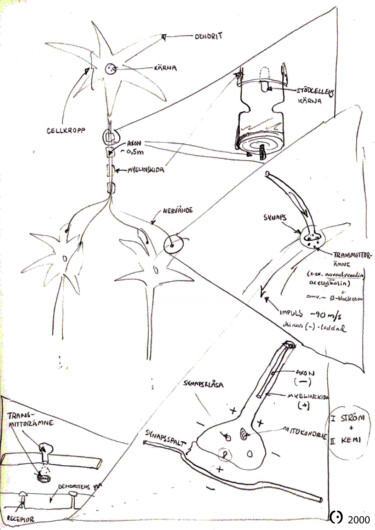 DENDRIT
KÄRNA
CELLKROPP
AXON
~0,5m
MYELINSKIDA
NERVÄNDE
STÖDCELLENS
KÄRNA
SYNAPS
TRANSMITTOR-
ÄMNE
(t.ex. noradrenalin
acetylkolin)
IMPULS ~90 m/s
(-)
SYNAPSKLÅSA
AXON
(-)
MYELINSKIDA
(+)
MITOKONDRIE
SYNAPSSPALT
+
-
+
-
+
-
+
-
I STRÖM
+
II KEMI
TRANS-
MITTORÄMNE
DENDRITENS
RECEPTOR
2000